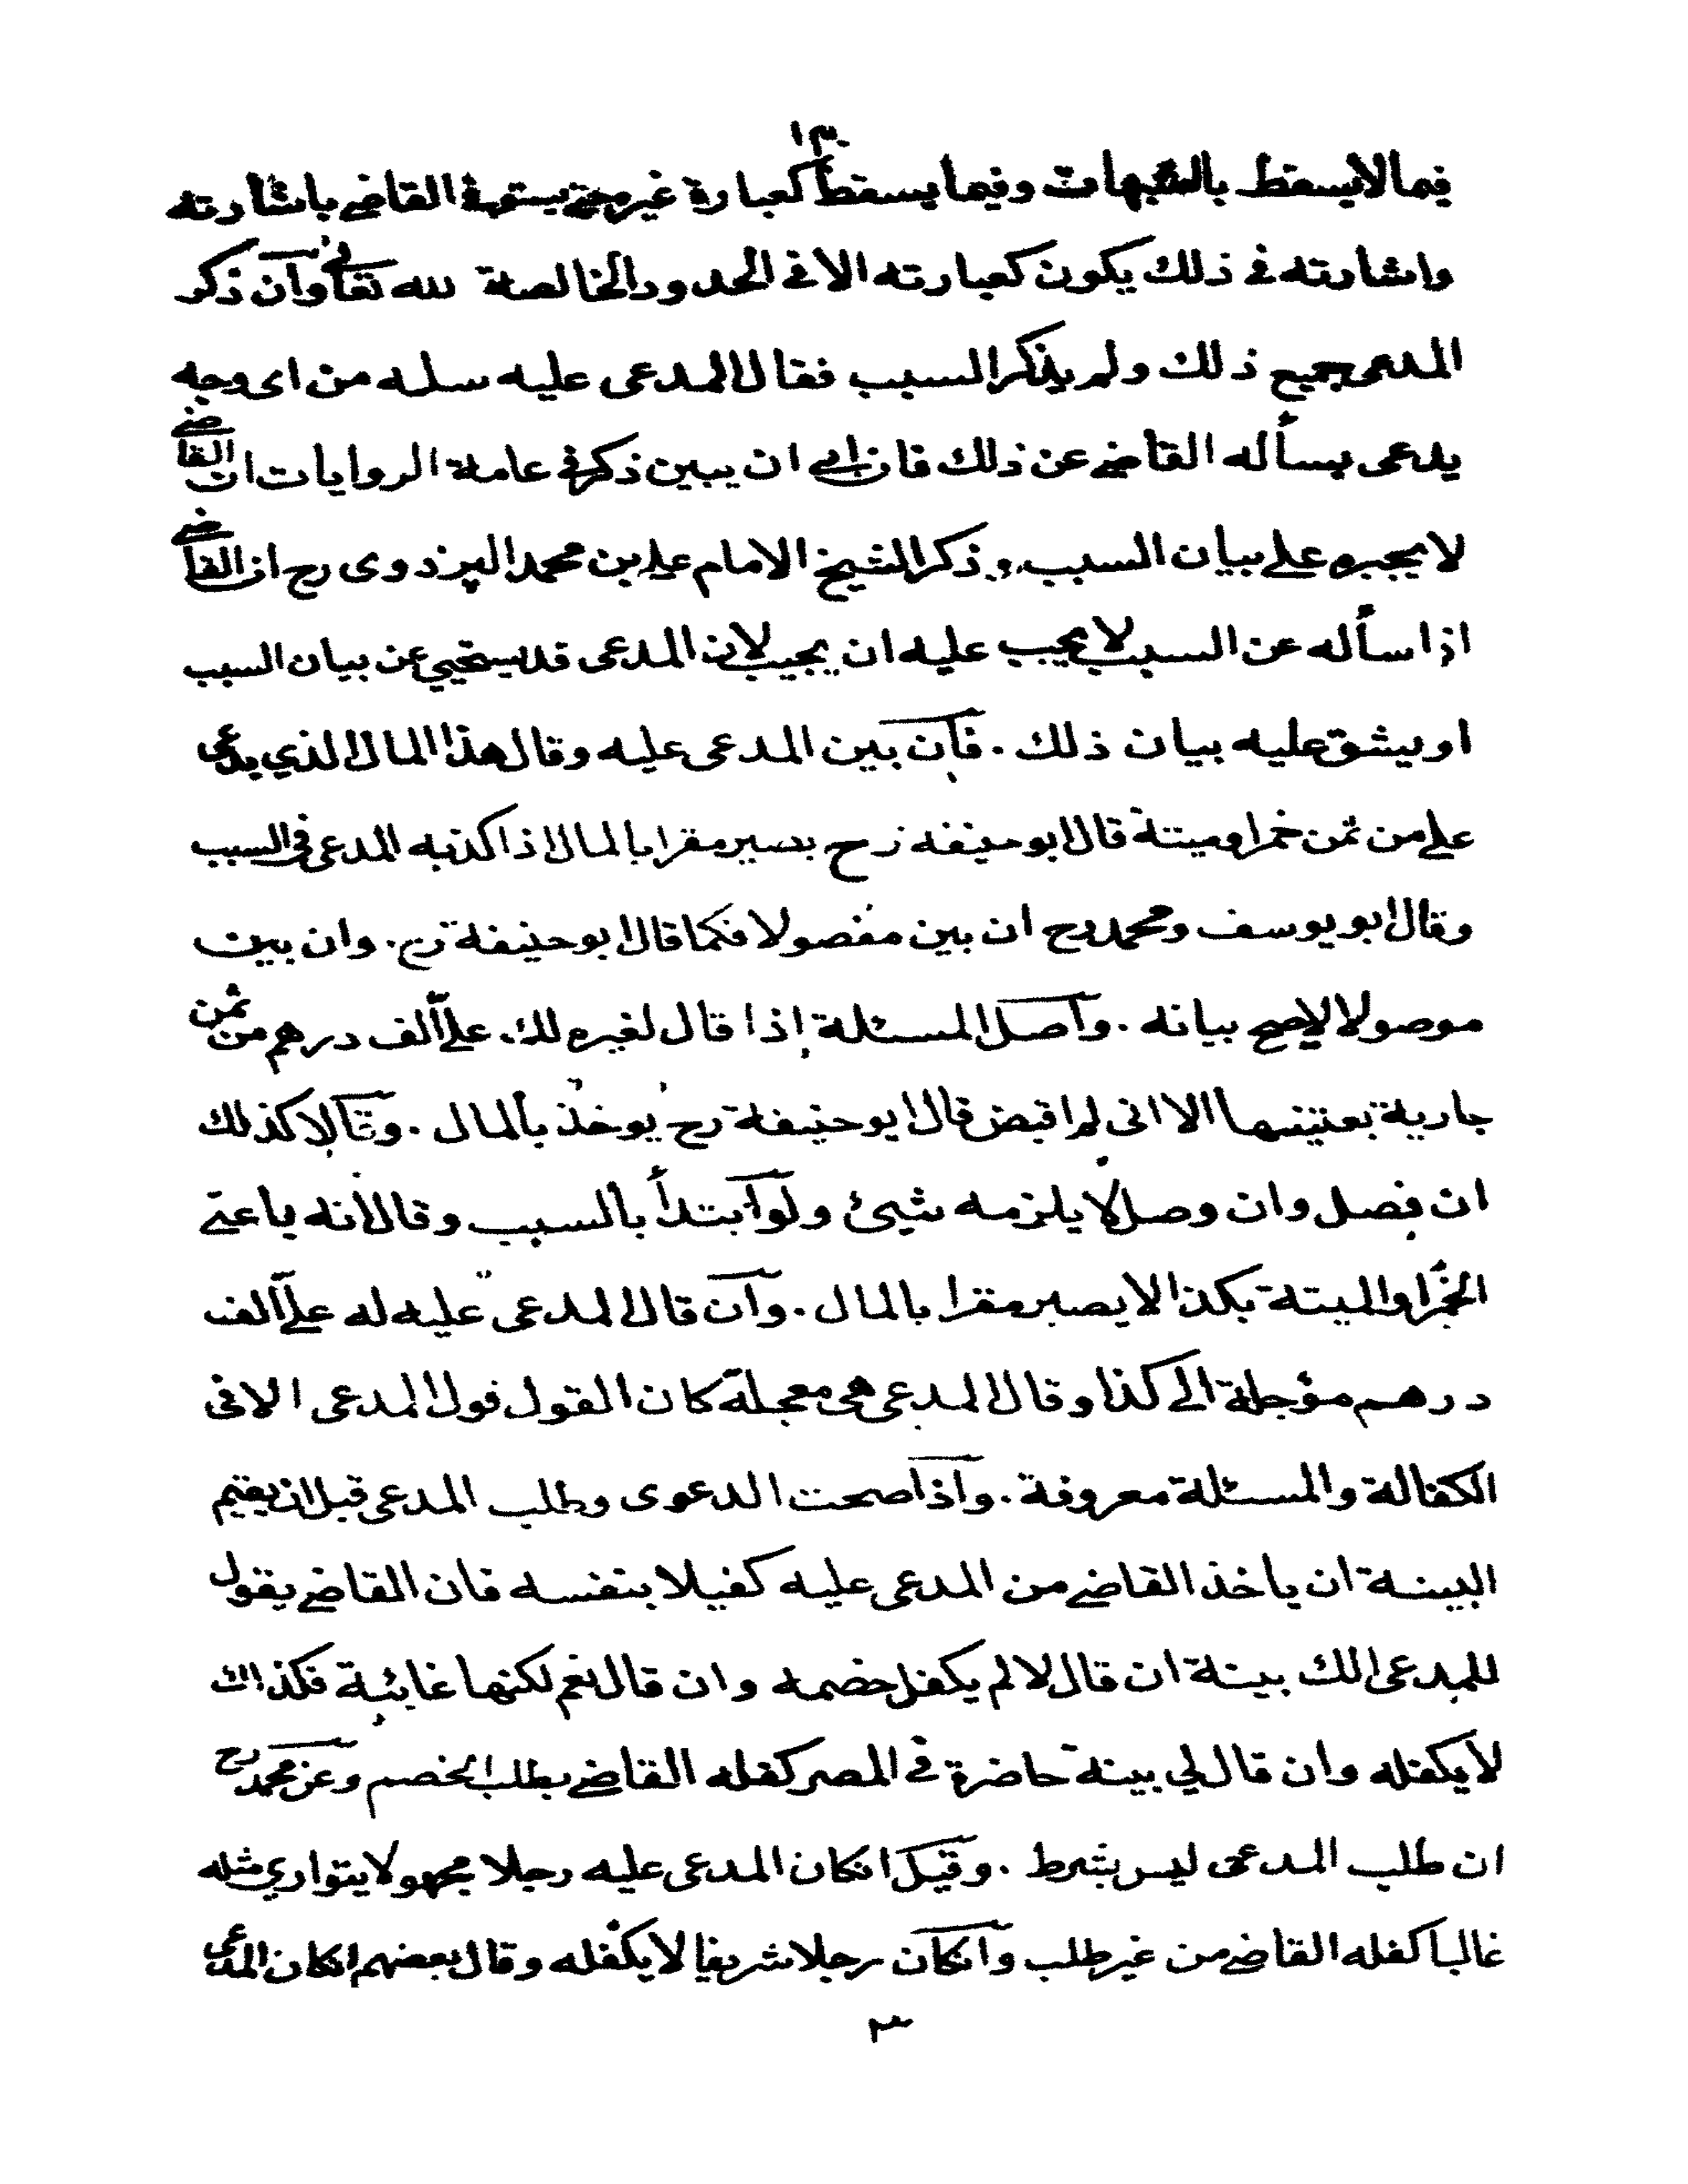 ١٣٠
فيما لا يسقط بالشبهات وفيما يسقط كعبارة غيره حتى يستوفى القاضي باشارته
واشارته في ذلك يكون كعبارته الا في الحدود الخالصة لله تعالى وان ذكر
المدعى جميع ذلك ولم يذكر السبب فقال المدعى عليه سله من اى وجه
يدعى يسأله القاضي عن ذلك فان ابى ان يبين ذكر في عامة الروايات ان القاضي
لا يجبره على بيان السبب وذكر الشيخ الامام على بن محمد البزدوى رح ان القاضي
اذا سأله عن السبب لا يجب عليه ان يجيب لان المدعى قد يستحيي عن بيان السبب
او يشق عليه بيان ذلك . فان بين المدعى عليه وقال هذا المال الذي يدعى
على من ثمن خمر او ميتة قال ابو حنيفه رح يصير مقرا بالمال اذا كذبه المدعى في السبب
وقال ابو يوسف ومحمد رح ان بين مفصولا فكما قال ابو حنيفة رح . وان بين
موصولا لا يصح بيانه . واصل المسئلة إذا قال لغيره لك على ألف درهم من ثمن
جارية بعتنيها الا انى لم اقبض قال ابو حنيفة رح يوخذ بالمال . وقالا كذلك
ان فصل وان وصل لا يلزمه شيئ ولو ابتدأ بالسبب وقال انه باعني
الخمر او الميتة بكذا لا يصير مقرا بالمال . وان قال المدعى عليه له على ألف
درهم مؤجلة الى كذا وقال المدعى هى معجلة كان القول قول المدعى الا فى
الكفالة والمسئلة معروفة . واذا صحت الدعوى وطلب المدعى قبل ان يقيم
البينة ان ياخذ القاضي من المدعى عليه كفيلا بنفسه فان القاضي يقول
للمدعى الك بينة ان قال لا لم يكفل خصمه وان قال نعم لكنها غائبة فكذلك
لا يكفله وان قال لي بينة حاضرة في المصر كفله القاضي بطلب الخصم وعن محمد رح
ان طلب المدعى ليس بشرط . وقيل انكان المدعى عليه رجلا مجهولا يتوارى مثله
غالبا كفله القاضي من غير طلب وانكان رجلا شريفا لا يكفله وقال بعضهم انكان المدعى